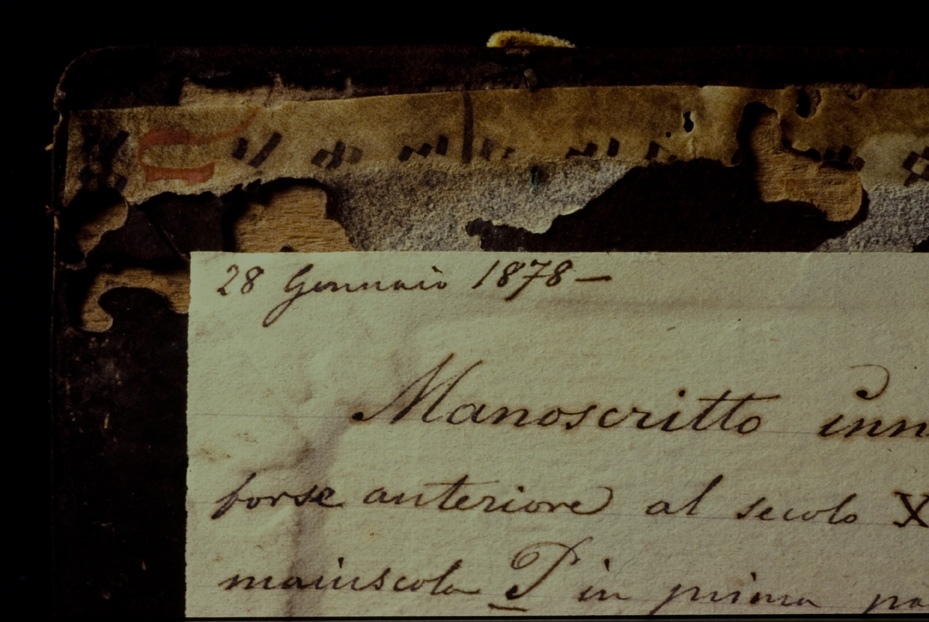 28 Gennaio 1878—
Manoscritto inn
forse anteriore al secolo X
maiuscola P in prima pa